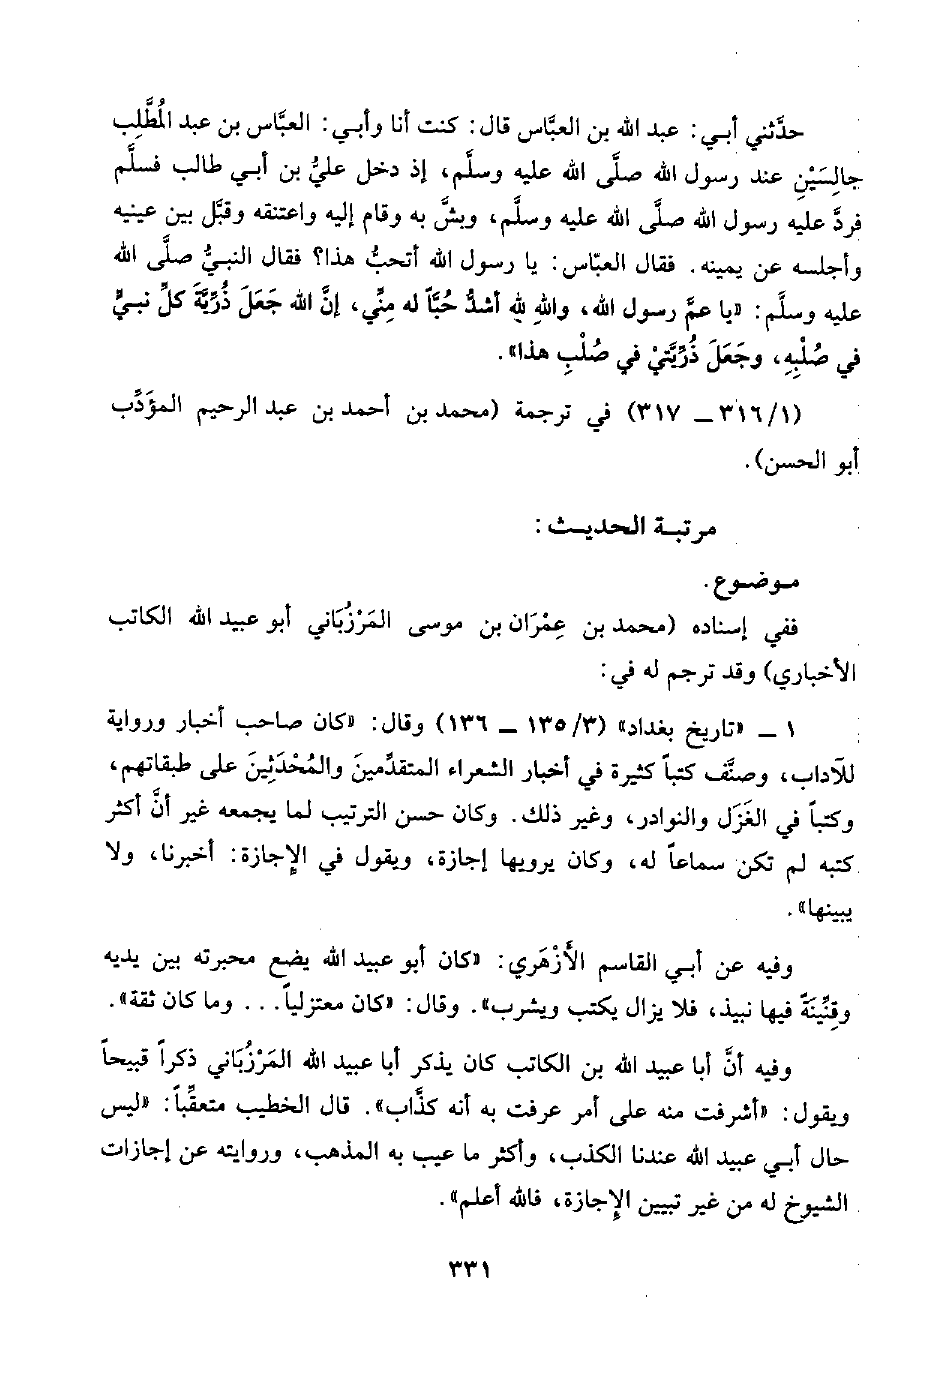 حدَّثني أبي: عبد الله بن العبَّاس قال: كنت أنا وأبي: العبَّاس بن عبد المُطَّلِب
جالِسَيْنِ عند رسول الله صلَّى الله عليه وسلَّم، إذ دخل عليُّ بن أبي طالب فسلَّم
فردَّ عليه رسول الله صلَّى الله عليه وسلَّم، وبشَّ به وقام إليه واعتنقه وقبَّل بين عينيه
وأجلسه عن يمينه. فقال العبّاس: يا رسول الله أتحبُّ هذا؟ فقال النبيُّ صلَّى الله
عليه وسلَّم: «يا عمَّ رسول الله، واللهِ لله أشدُّ حُبَّاً له مِنِّي، إنَّ الله جَعَلَ ذُرِّيَّةَ كلِّ نبيٍّ
في صُلْبِهِ، وجَعَلَ ذُرِّيَّتيْ في صُلْبِ هذا».
(٣١٦/١ ــ ٣١٧) في ترجمة (محمد بن أحمد بن عبد الرحيم المؤدِّب
أبو الحسن).
مرتبة الحديث:
موضوع.
ففي إسناده (محمد بن عِمْرَان بن موسى المَرْزُبَاني أبو عبيد الله الكاتب
الأخباري) وقد ترجم له في:
١ ــ «تاريخ بغداد» (١٣٥/٣ ــ ١٣٦) وقال: «كان صاحب أخبار ورواية
للآداب، وصنَّف كتباً كثيرة في أخبار الشعراء المتقدِّمينَ والمُحْدَثِينَ على طبقاتهم،
وكتباً في الغَزَل والنوادر، وغير ذلك. وكان حسن الترتيب لما يجمعه غير أنَّ أكثر
كتبه لم تكن سماعاً له، وكان يرويها إجازة، ويقول في الإِجازة: أخبرنا، ولا
يبينها».
وفيه عن أبي القاسم الأَزْهَري: «كان أبو عبيد الله يضع محبرته بين يديه
وقِنِّينَةً فيها نبيذ، فلا يزال يكتب ويشرب». وقال: «كان معتزلياً... وما كان ثقة».
وفيه أنَّ أبا عبيد الله بن الكاتب كان يذكر أبا عبيد الله المَرْزُبَاني ذكراً قبيحاً
ويقول: «أشرفت منه على أمر عرفت به أنه كذَّاب». قال الخطيب متعقِّباً: «ليس
حال أبي عبيد الله عندنا الكذب، وأكثر ما عيب به المذهب، وروايته عن إجازات
الشيوخ له من غير تبيين الإِجازة، فالله أعلم».
٣٣١